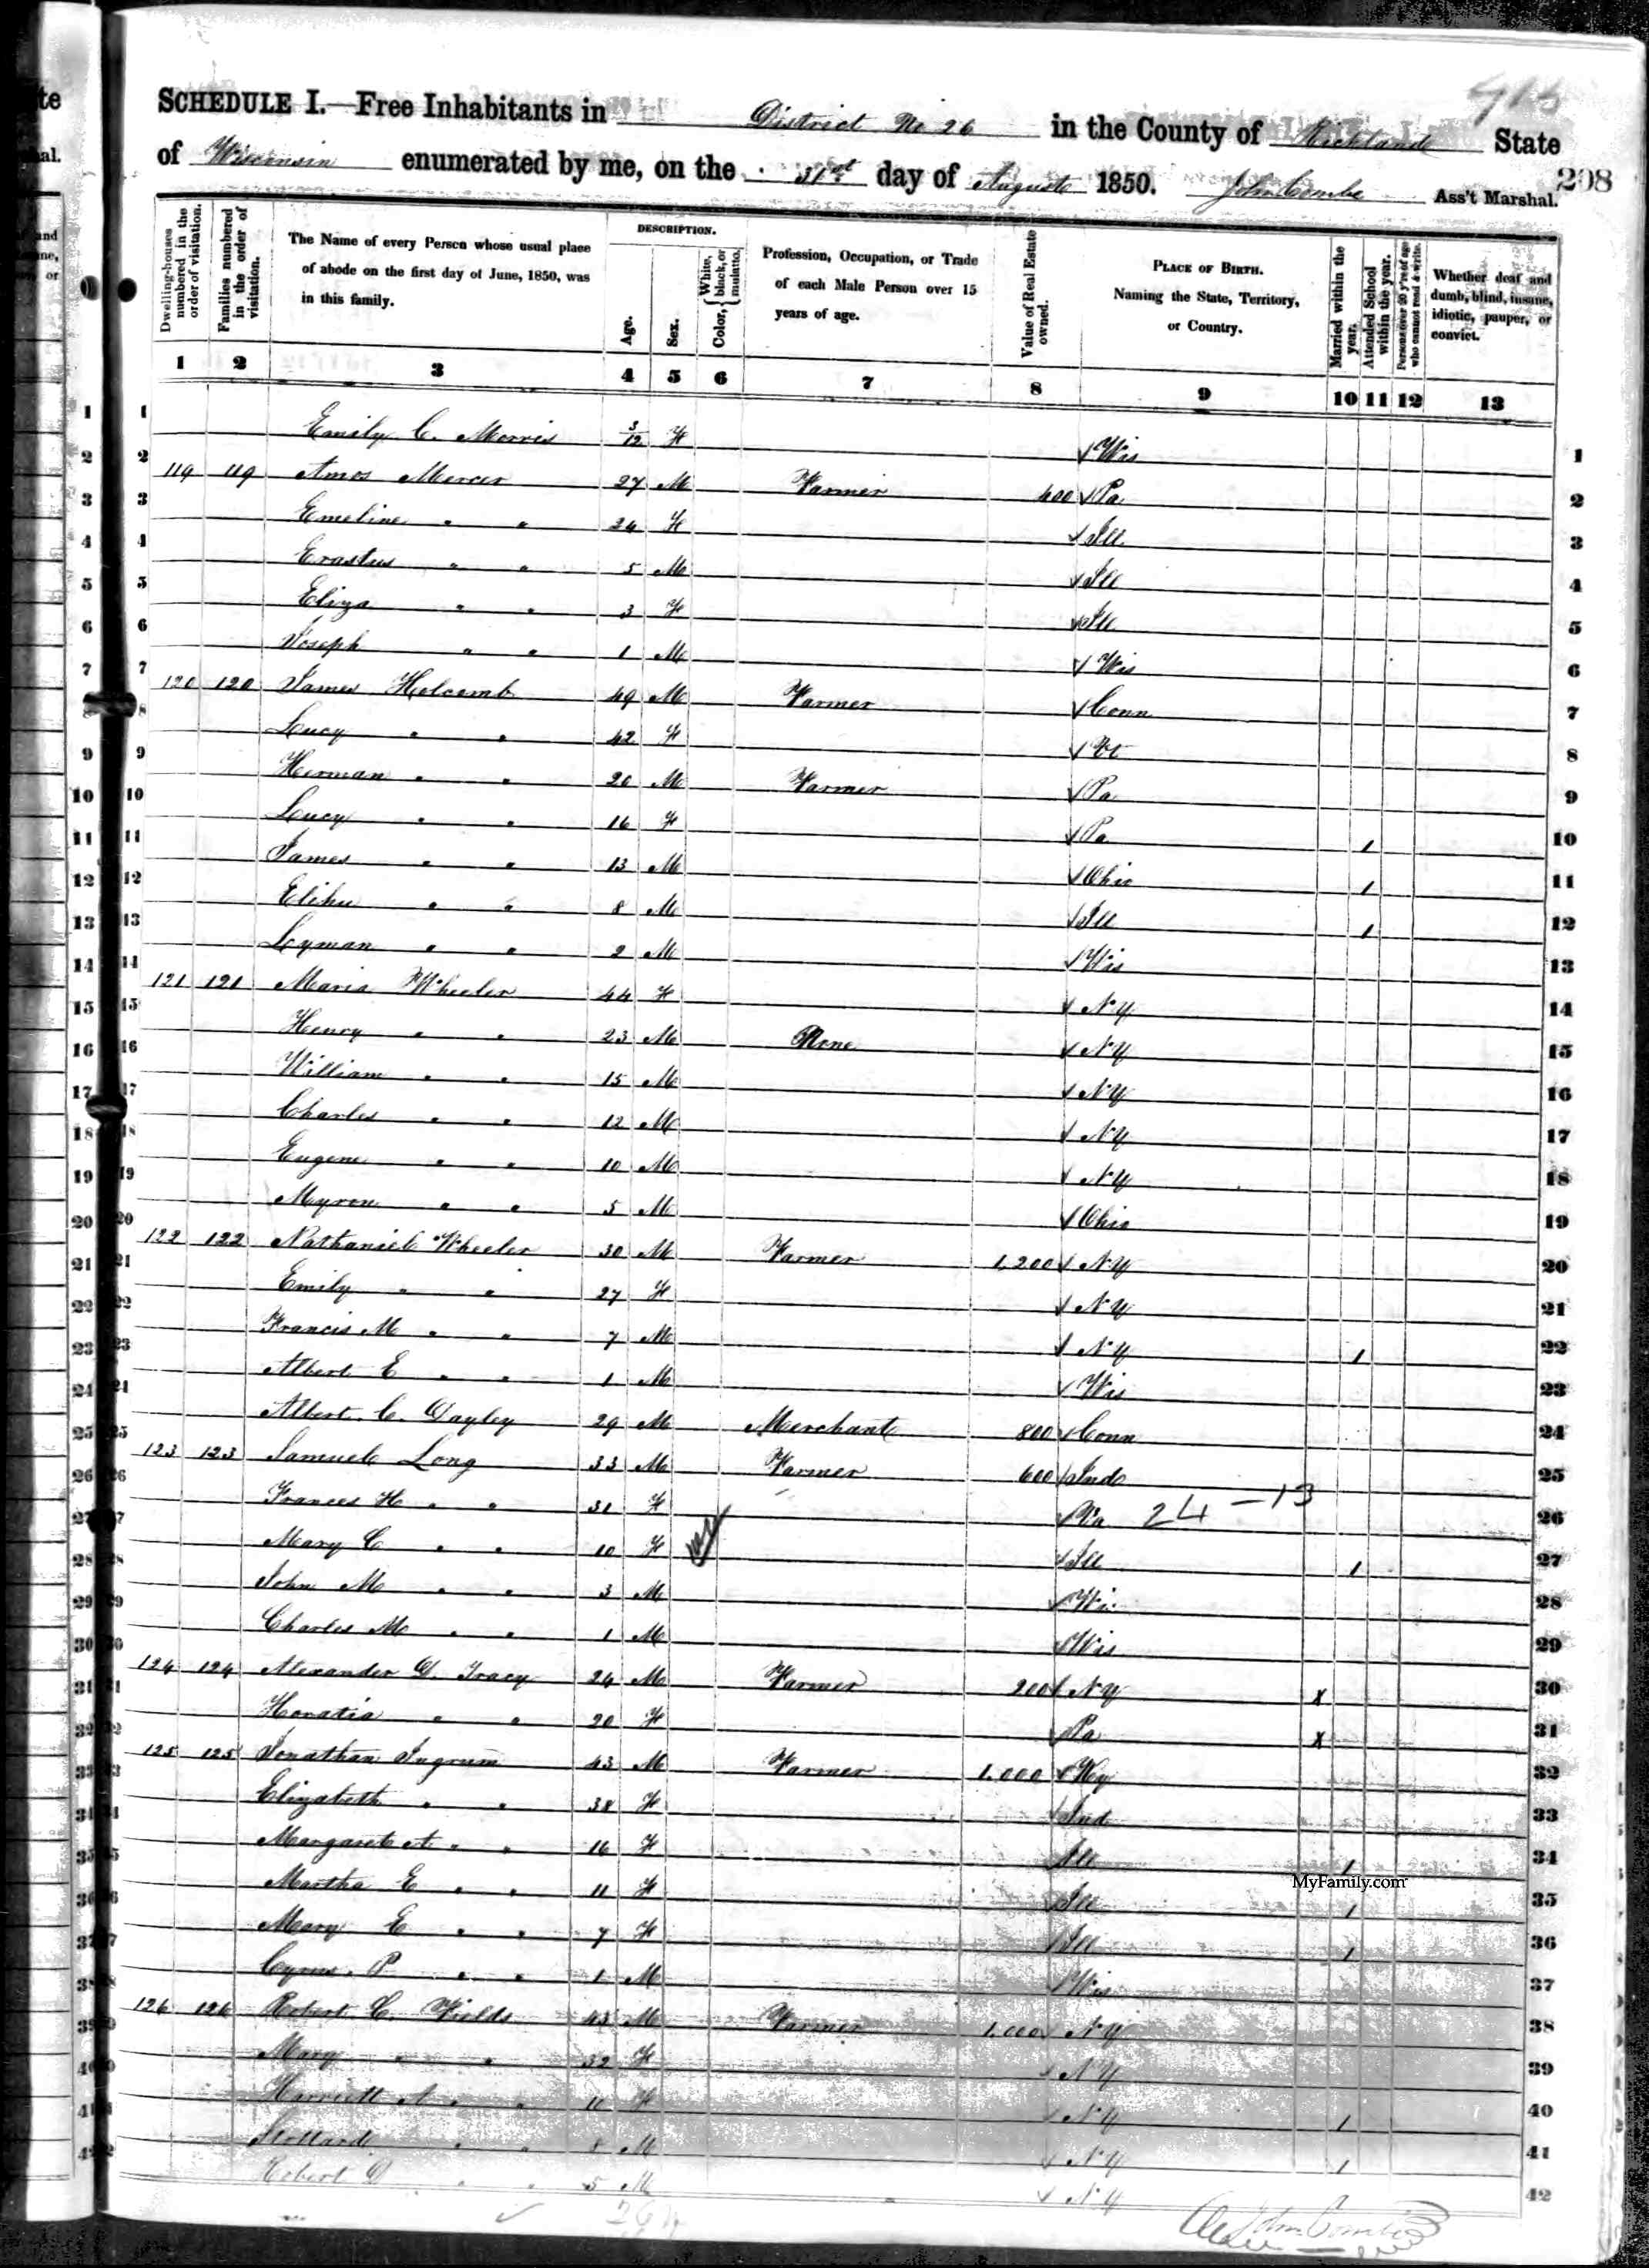 SCHEDULE I.—Free Inhabitants in District No 26 in the County of Richland State
of Wisconsin enumerated by me, on the 31st day of August 1850. John Combe Ass't Marshal.
208
Dwelling-houses numbered in the order of visitation.
Families numbered in the order of visitation.
The Name of every Person whose usual place of abode on the first day of June, 1850, was in this family.
DESCRIPTION.
Age.
Sex.
Color, White, black, or mulatto.
Profession, Occupation, or Trade of each Male Person over 15 years of age.
Value of Real Estate owned.
PLACE OF BIRTH. Naming the State, Territory, or Country.
Married within the year.
Attended School within the year.
Persons over 20 y'rs of age who cannot read & write.
Whether deaf and dumb, blind, insane, idiotic, pauper, or convict.
1 2 3 4 5 6 7 8 9 10 11 12 13
1 Emily C. Morris 3/12 F Wis 1
2 119 119 Amos Mercer 27 M Farmer 400 Pa 2
3 Emeline " " 24 F Ill. 3
4 Erastus " " 5 M Ill 4
5 Eliza " " 3 F Ill 5
6 Joseph " " 1 M Wis 6
7 120 120 James Holcomb 49 M Farmer Conn 7
8 Lucy " " 42 F Vt 8
9 Herman " " 20 M Farmer Pa 9
10 Lucy " " 16 F Pa 1 10
11 James " " 13 M Ohio 1 11
12 Elihu " " 8 M Ill 1 12
13 Lyman " " 2 M Wis 13
14 121 121 Maria Wheeler 44 F N.Y 14
15 Henry " " 23 M None N Y 15
16 William " " 15 M N Y 16
17 Charles " " 12 M N Y 17
18 Eugene " " 10 M N Y 18
19 Myron " " 5 M Ohio 19
20 122 122 Nathaniel Wheeler 30 M Farmer 1,200 N Y 20
21 Emily " " 27 F N Y 21
22 Francis M " " 7 M N Y 1 22
23 Albert E " " 1 M Wis 23
24 Albert C. Dayley 29 M Merchant 800 Conn 24
25 123 123 Samuel Long 33 M Farmer 600 Ind 25
26 Frances H " " 31 F Va 24-13 26
27 Mary C " " 10 F Ill 1 27
28 John M " " 3 M Wi. 28
29 Charles M " " 1 M Wis 29
30 124 124 Alexander D. Tracy 24 M Farmer 200 N Y X 30
31 Horatia " " 20 F Pa X 31
32 125 125 Jonathan Ingrum 43 M Farmer 1.000 Ky 32
33 Elizabeth " " 38 F Ind 33
34 Margaret A " " 16 F Ill 1 34
MyFamily.com
35 Martha E " " 11 F Ill 1 35
36 Mary E " " 7 F Ill 1 36
37 Cyrus P " " 1 M Wis 37
38 126 126 Robert C. Fields 43 M Farmer 1.000 N Y 38
39 Mary " " 32 F N Y 39
40 Harriett A " " 10 F N Y 1 40
41 " " 8 M N Y 1 41
42 Robert D " " 5 M N Y 42